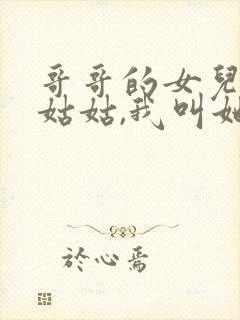 哥哥的女兒
姑姑,我叫她
於心焉